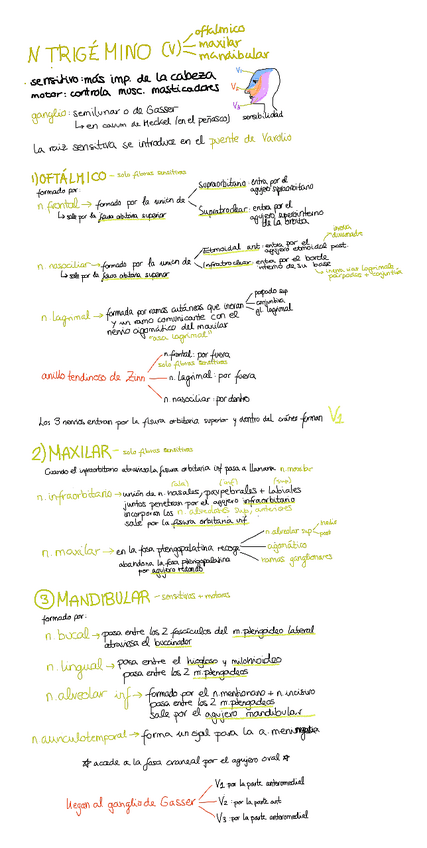 N TRIGÉMINO (V)
oftálmico
maxilar
mandibular
· sensitivo: más imp. de la cabeza
motor: controla musc. masticadores
V1
V2
V3
sensibilidad
ganglio: semilunar o de Gasser
↳ en cavum de Meckel (en el peñasco)
La raiz sensitiva se introduce en el puente de Varolio
1) OFTÁLMICO - solo fibras sensitivas
formado por:
n frontal → formado por la unión de
↳ sale por la fisura orbitaria superior
Supraorbitario: entra por el
agujero supraorbitario
Supratroclear: entra por el
de la órbita
n. nasociliar → formado por la unión de
↳ sale por la fisura orbitaria superior
Etmoidal ant: entra por el
agujero etmoidal post.
Infratroclear: entra por el borde
interno de su base
n. lagrimal → formada por ramas cutáneas que inervan
y un ramo comunicante con el
nervio cigomático del maxilar
"asa lagrimal"
párpado sup
conjuntiva
gl. lagrimal
anillo tendinoso de Zinn
n frontal: por fuera
solo fibras sensitivas
n. lagrimal: por fuera
n nasociliar: por dentro
Los 3 nervios entran por la fisura orbitaria superior y dentro del cráneo forman V1
2) MAXILAR - solo fibras sensitivas
Cuando el infraorbitario atraviesa la fisura orbitaria inf pasa a llamarse n. maxilar
n. infraorbitario → unión de n. nasales, parpebrales + labiales
(inf) (sup)
juntos penetran por el agujero infraorbitario
incorporan los n. alveolares sup. anteriores
sale por la fisura orbitaria inf.
n. maxilar → en la fosa pterigopalatina recoge
abandona la fosa pterigopalatina
por agujero redondo
n alveolar sup
medio
post
cigomático
ramos ganglionares
3 MANDIBULAR - sensitivas + motores
formado por:
n. bucal → pasa entre los 2 fascículos del m. pterigoideo lateral
atraviesa el buccinador
n. lingual → pasa entre el hiogloso y milohioideo
pasa entre los 2 m. pterigoideos
n. alveolar inf → formado por el n. mentoniano + n incisivo
pasa entre los 2 m. pterigoideos
sale por el agujero mandibular
n auriculotemporal → forma un ojal para la a. meníngea
☆ accede a la fosa craneal por el agujero oval ☆
llegan al ganglio de Gasser
V1 por la parte anteromedial
V2: por la parte ant
V3: por la parte anteromedial